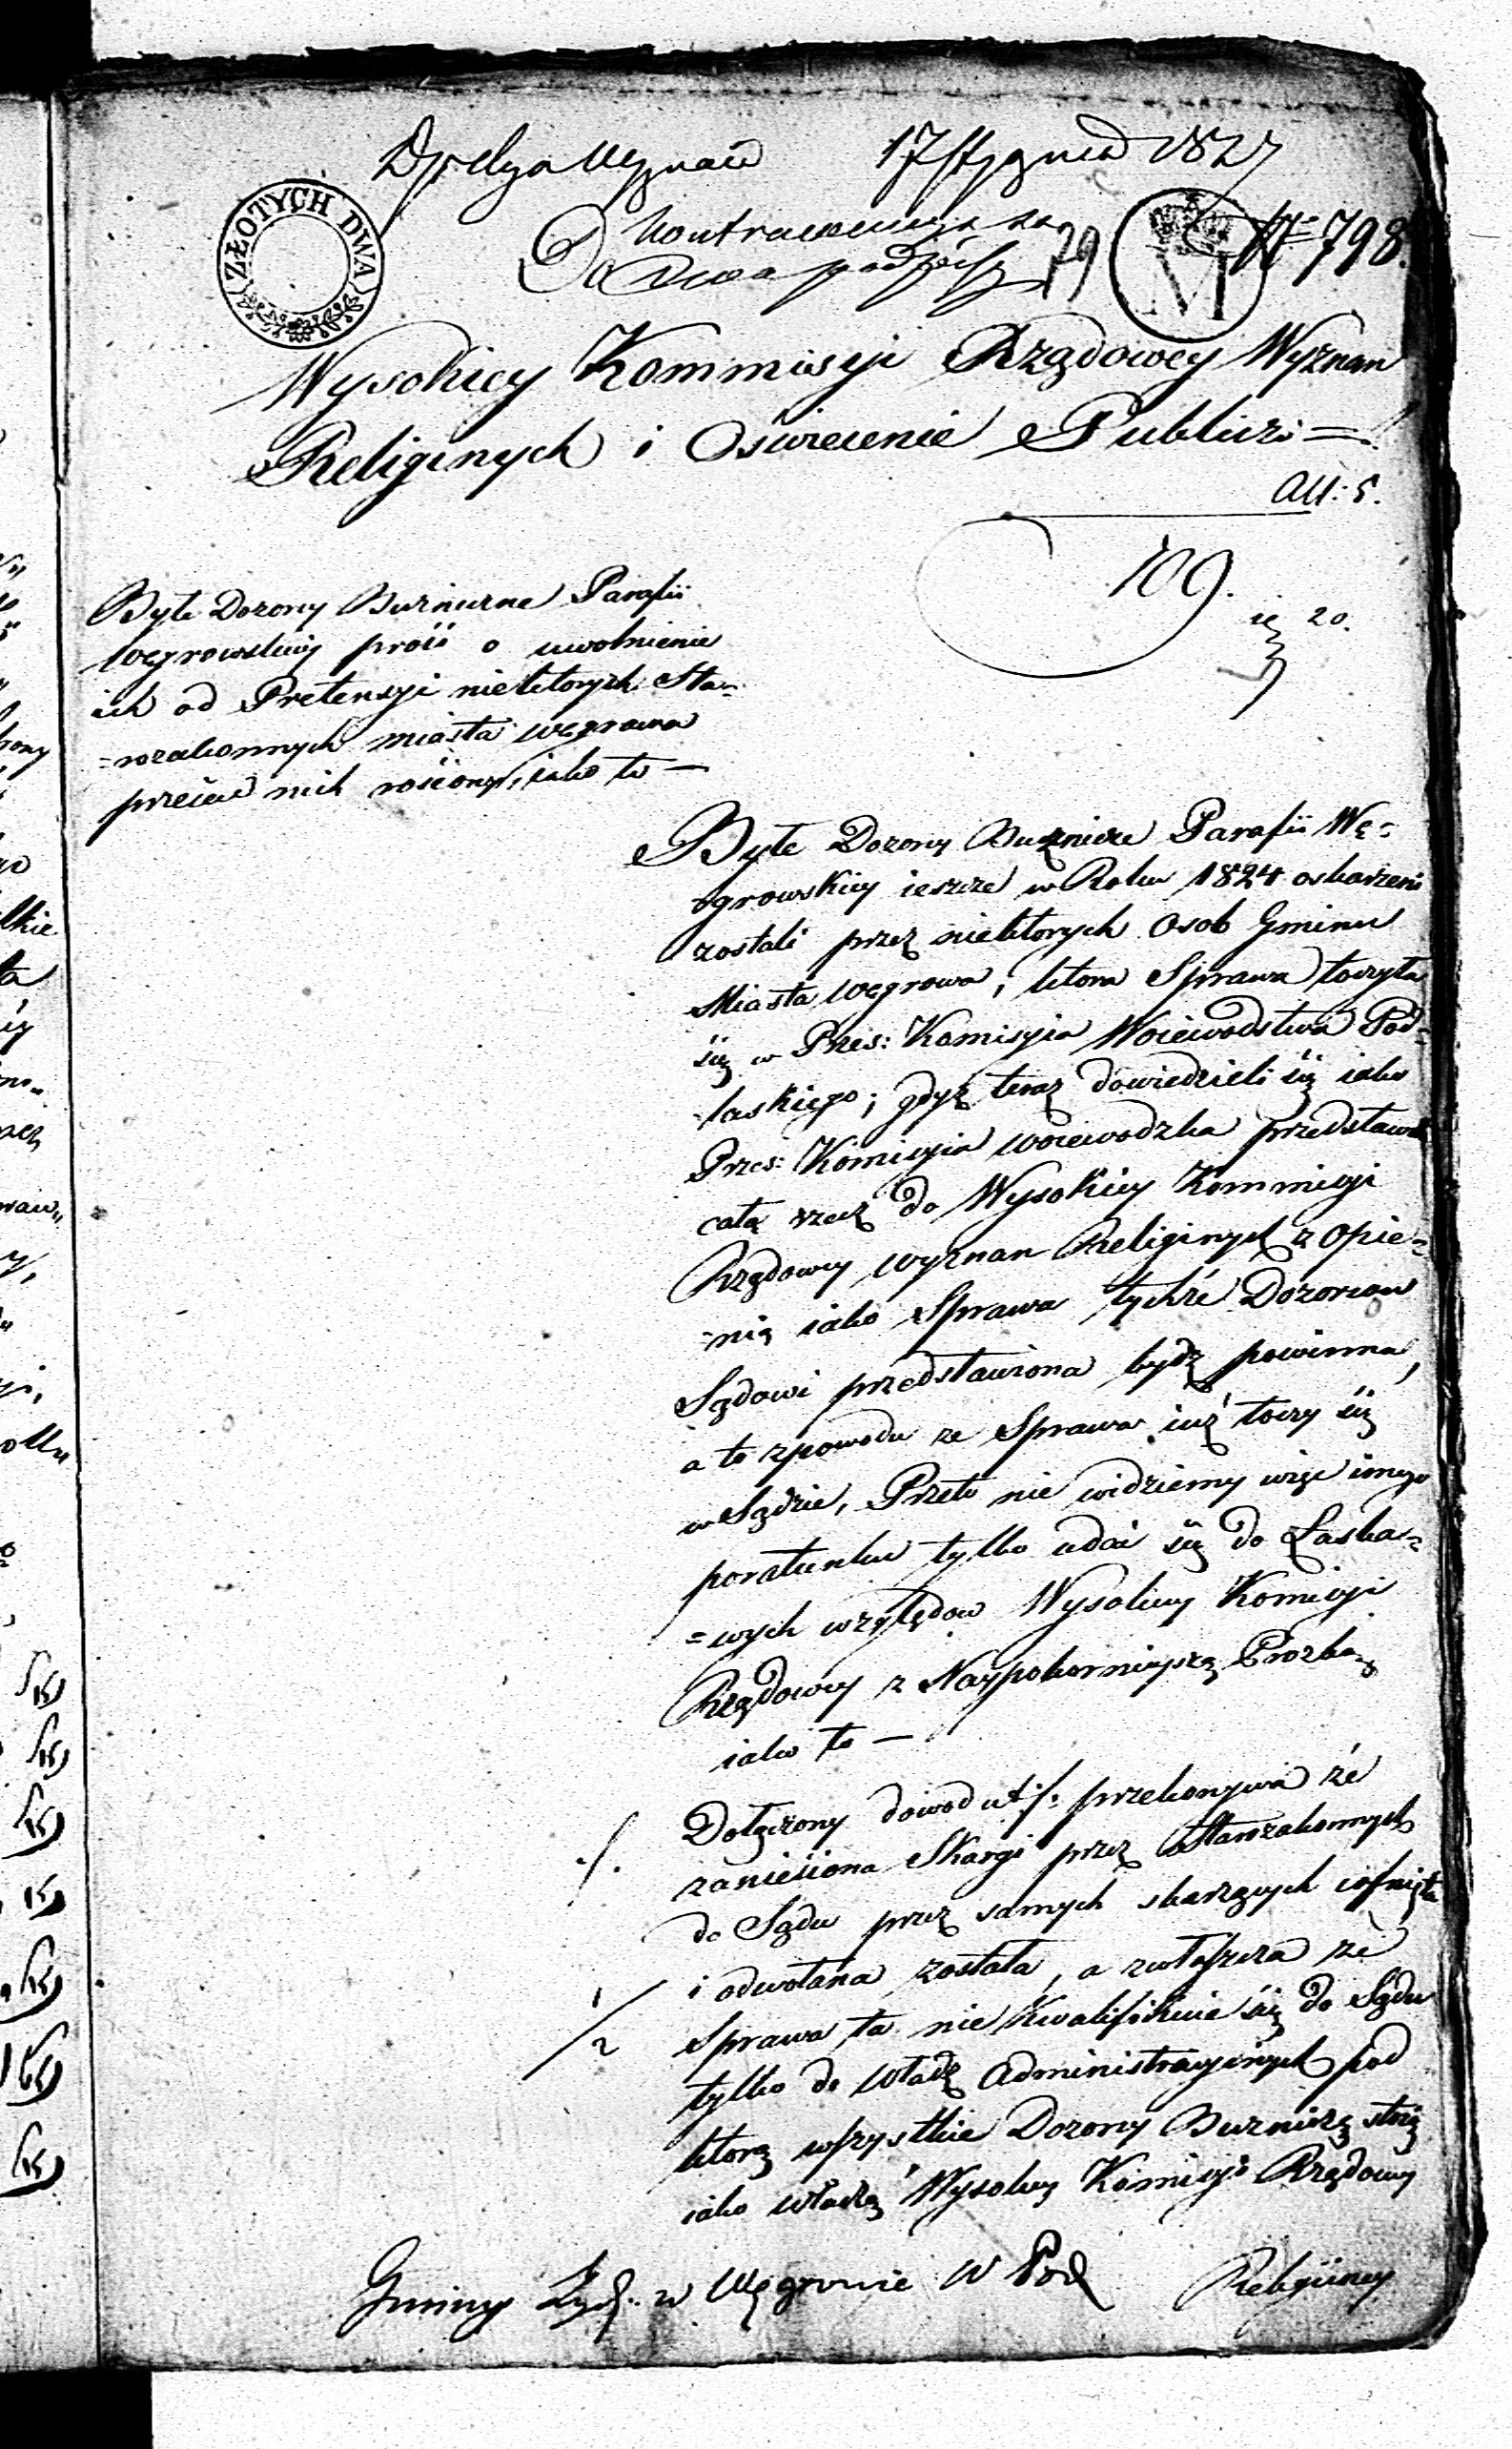 17 Stycznia 1827
ZŁOTYCH DWA
Do
29
M
N= 798.
Wysokiey Kommissyi Rządowey Wyznan
Religinych i Oswiecenie Publiczi =
All: 5.
109.
20.
Byłe Dozory Buznizne Parafii
Węgrowskiey prosi o uwolnienie
ich od Pretensyi niektorych Sta=
=rozakonnych miasta Węgrowa
przeciw nich rosconey, iako to —
Byłe Dozory Buznicze Parafii Wę=
=growskiey ieszcze w Roku 1824 oskarzeni
zostali przez niektorych Osob Gminu
Miasta Węgrowa, ktora Sprawa toczyła
się w Przes: Komisyia Woiewodstwa Pod=
=laskiego; gdyz teraz dowiedzieli się iako
Przes: Komisyia Woiewodzka przedstawiła
całą rzecz do Wysokiey Kommisyi
Rządowey Wyznan Religinych z Opie=
=nią iako Sprawa tychże Dozorcow
Sądowi przedstawiona bydz powinna,
a to zpowodu ze Sprawa iuż toczy się
w Sądzie, Przeto nie widziemy więc innego
poratunku tylko udać się do Łaska=
=wych względow Wysokiey Komisyi
Rządowey z Naypokornieyszą Prozbą
iako to —
./. Dołączony dowod ut ./. przekonywa że
zaniesiona Skargi przez Starozakonnych
do Sądu przez samych skarzących cofnięta
i odwołana została, a zwłaszcza że
1/2 Sprawa ta nie Kwalifikuie się do Sądu
tylko do Władz Administracyinych pod
ktorą wszystkie Dozory Buznicze stoią
iako władzą Wysokiey Komisyi Rządowey
Religiiney
Gminy Żyd. w Węgrowie W Pod